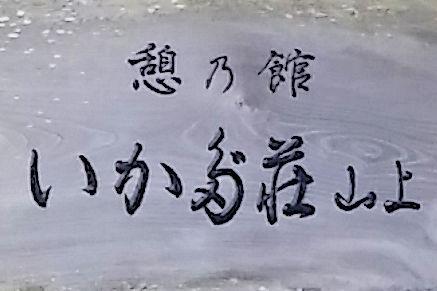 憩乃館
いかだ荘山上